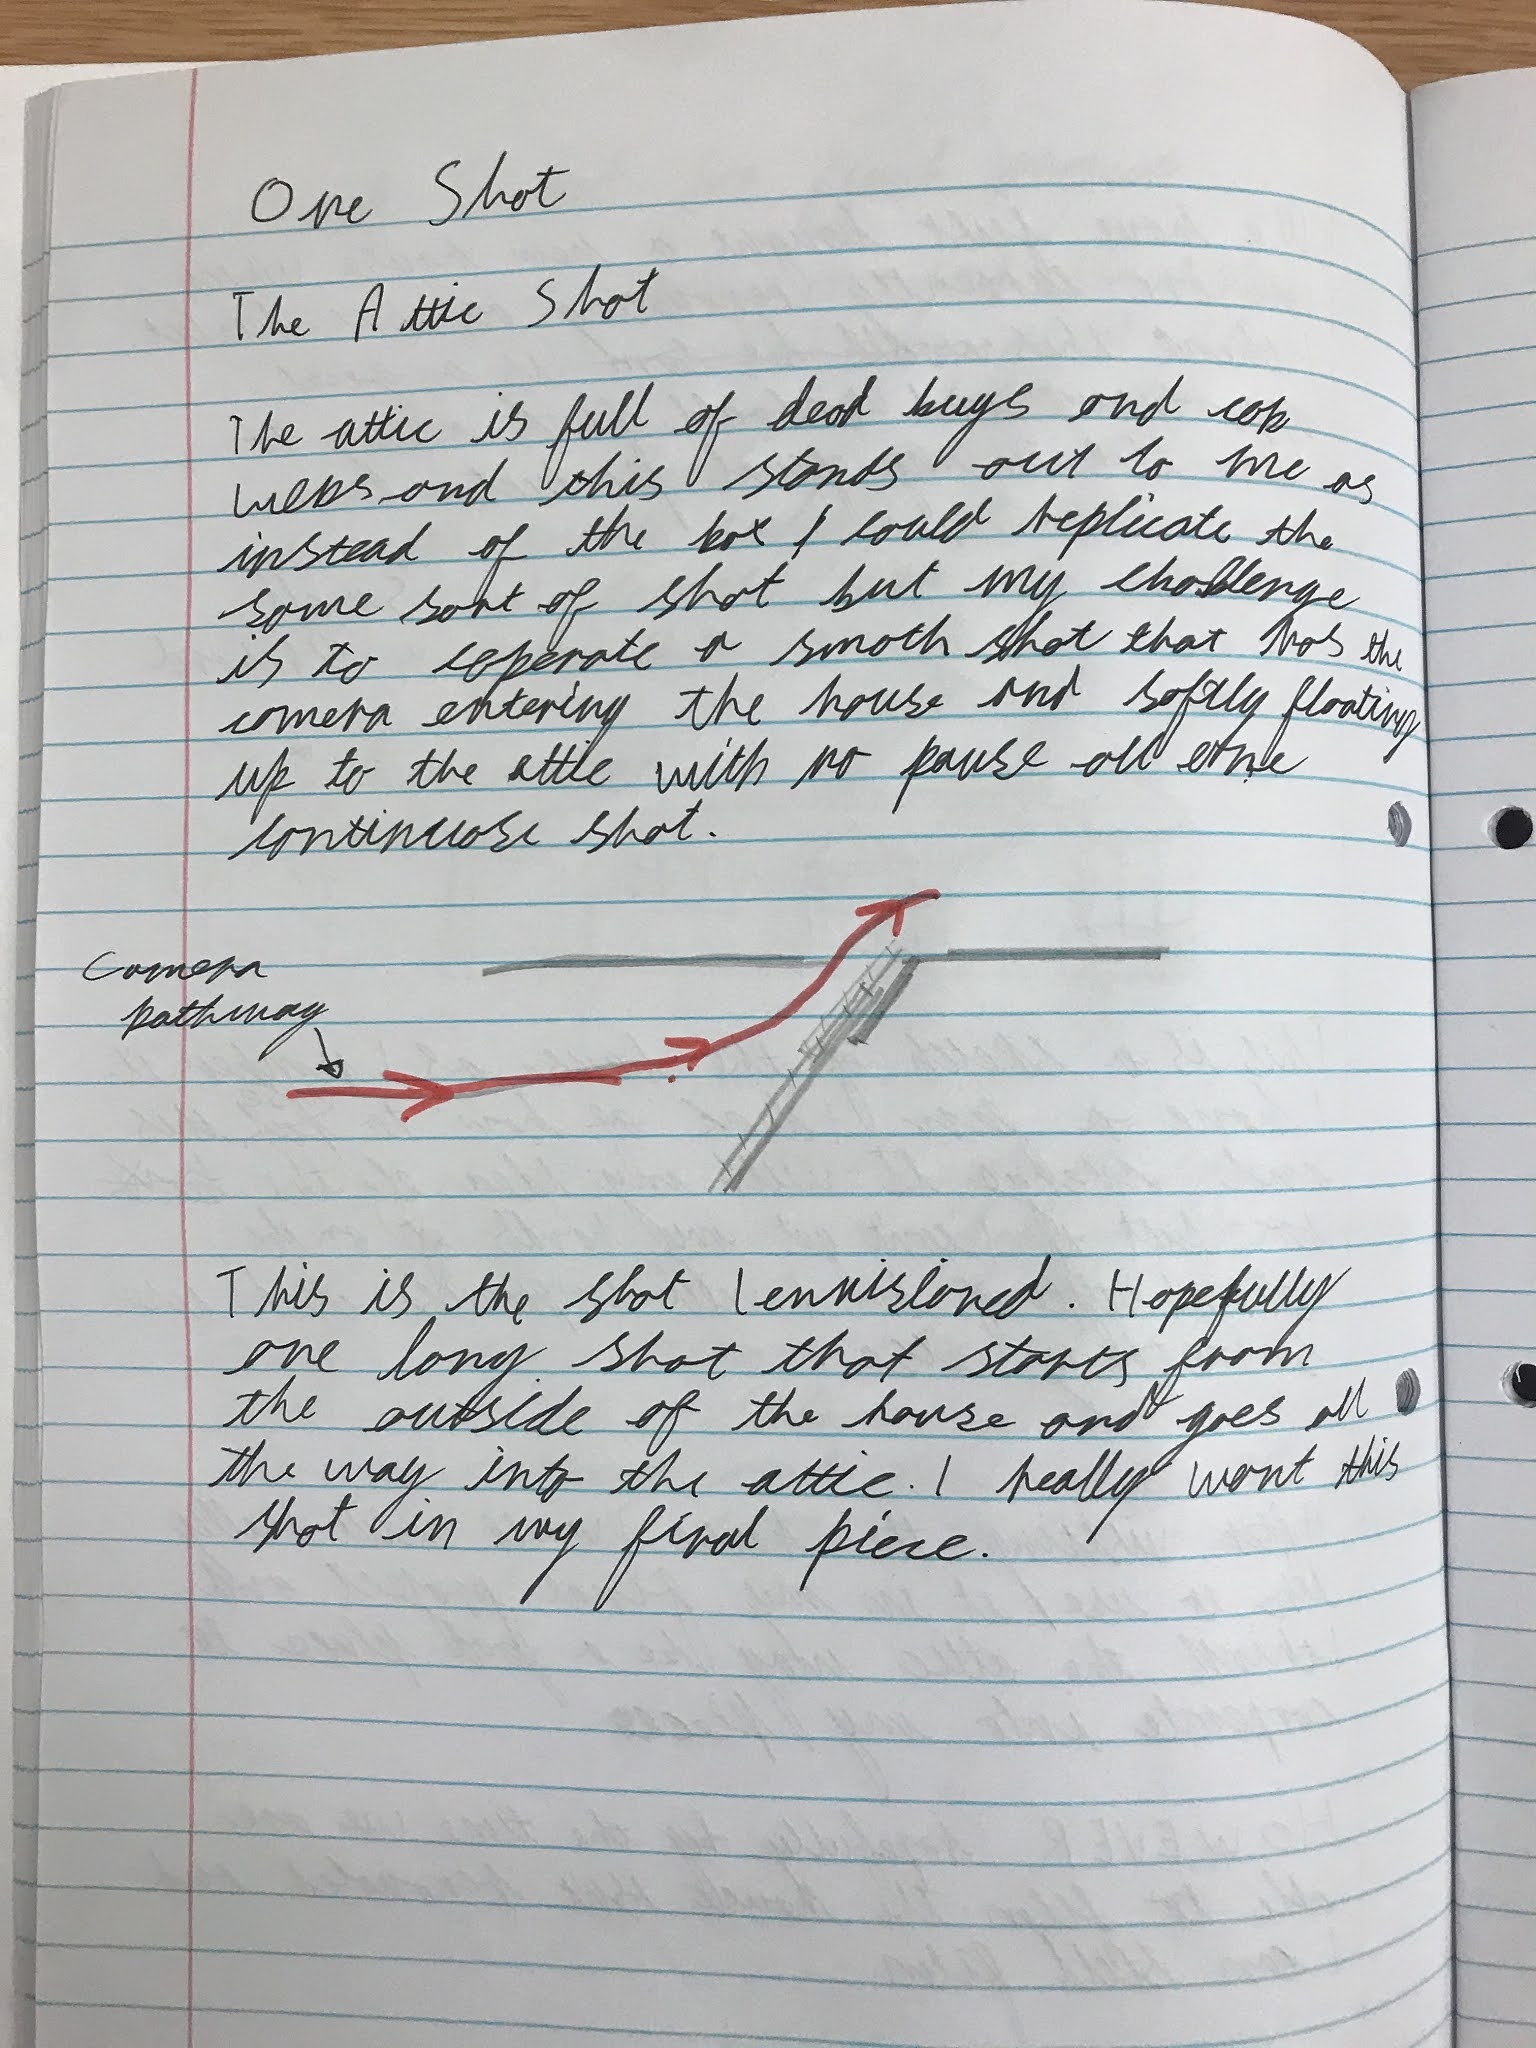 One Shot
The Attic Shot
The attic is full of dead bugs and cob
webs and this stands out to me as
instead of the box I could replicate the
same sort of shot but my challenge
is to a smoth shot that has the
camera entering the house and softly floating
up to the attic with no pause all one
continuose shot.
Camera
pathway
This is the shot I envisioned. Hopefully
one long shot that starts from
the outside of the house and goes all
the way into the attic. I really want this
shot in my final piece.